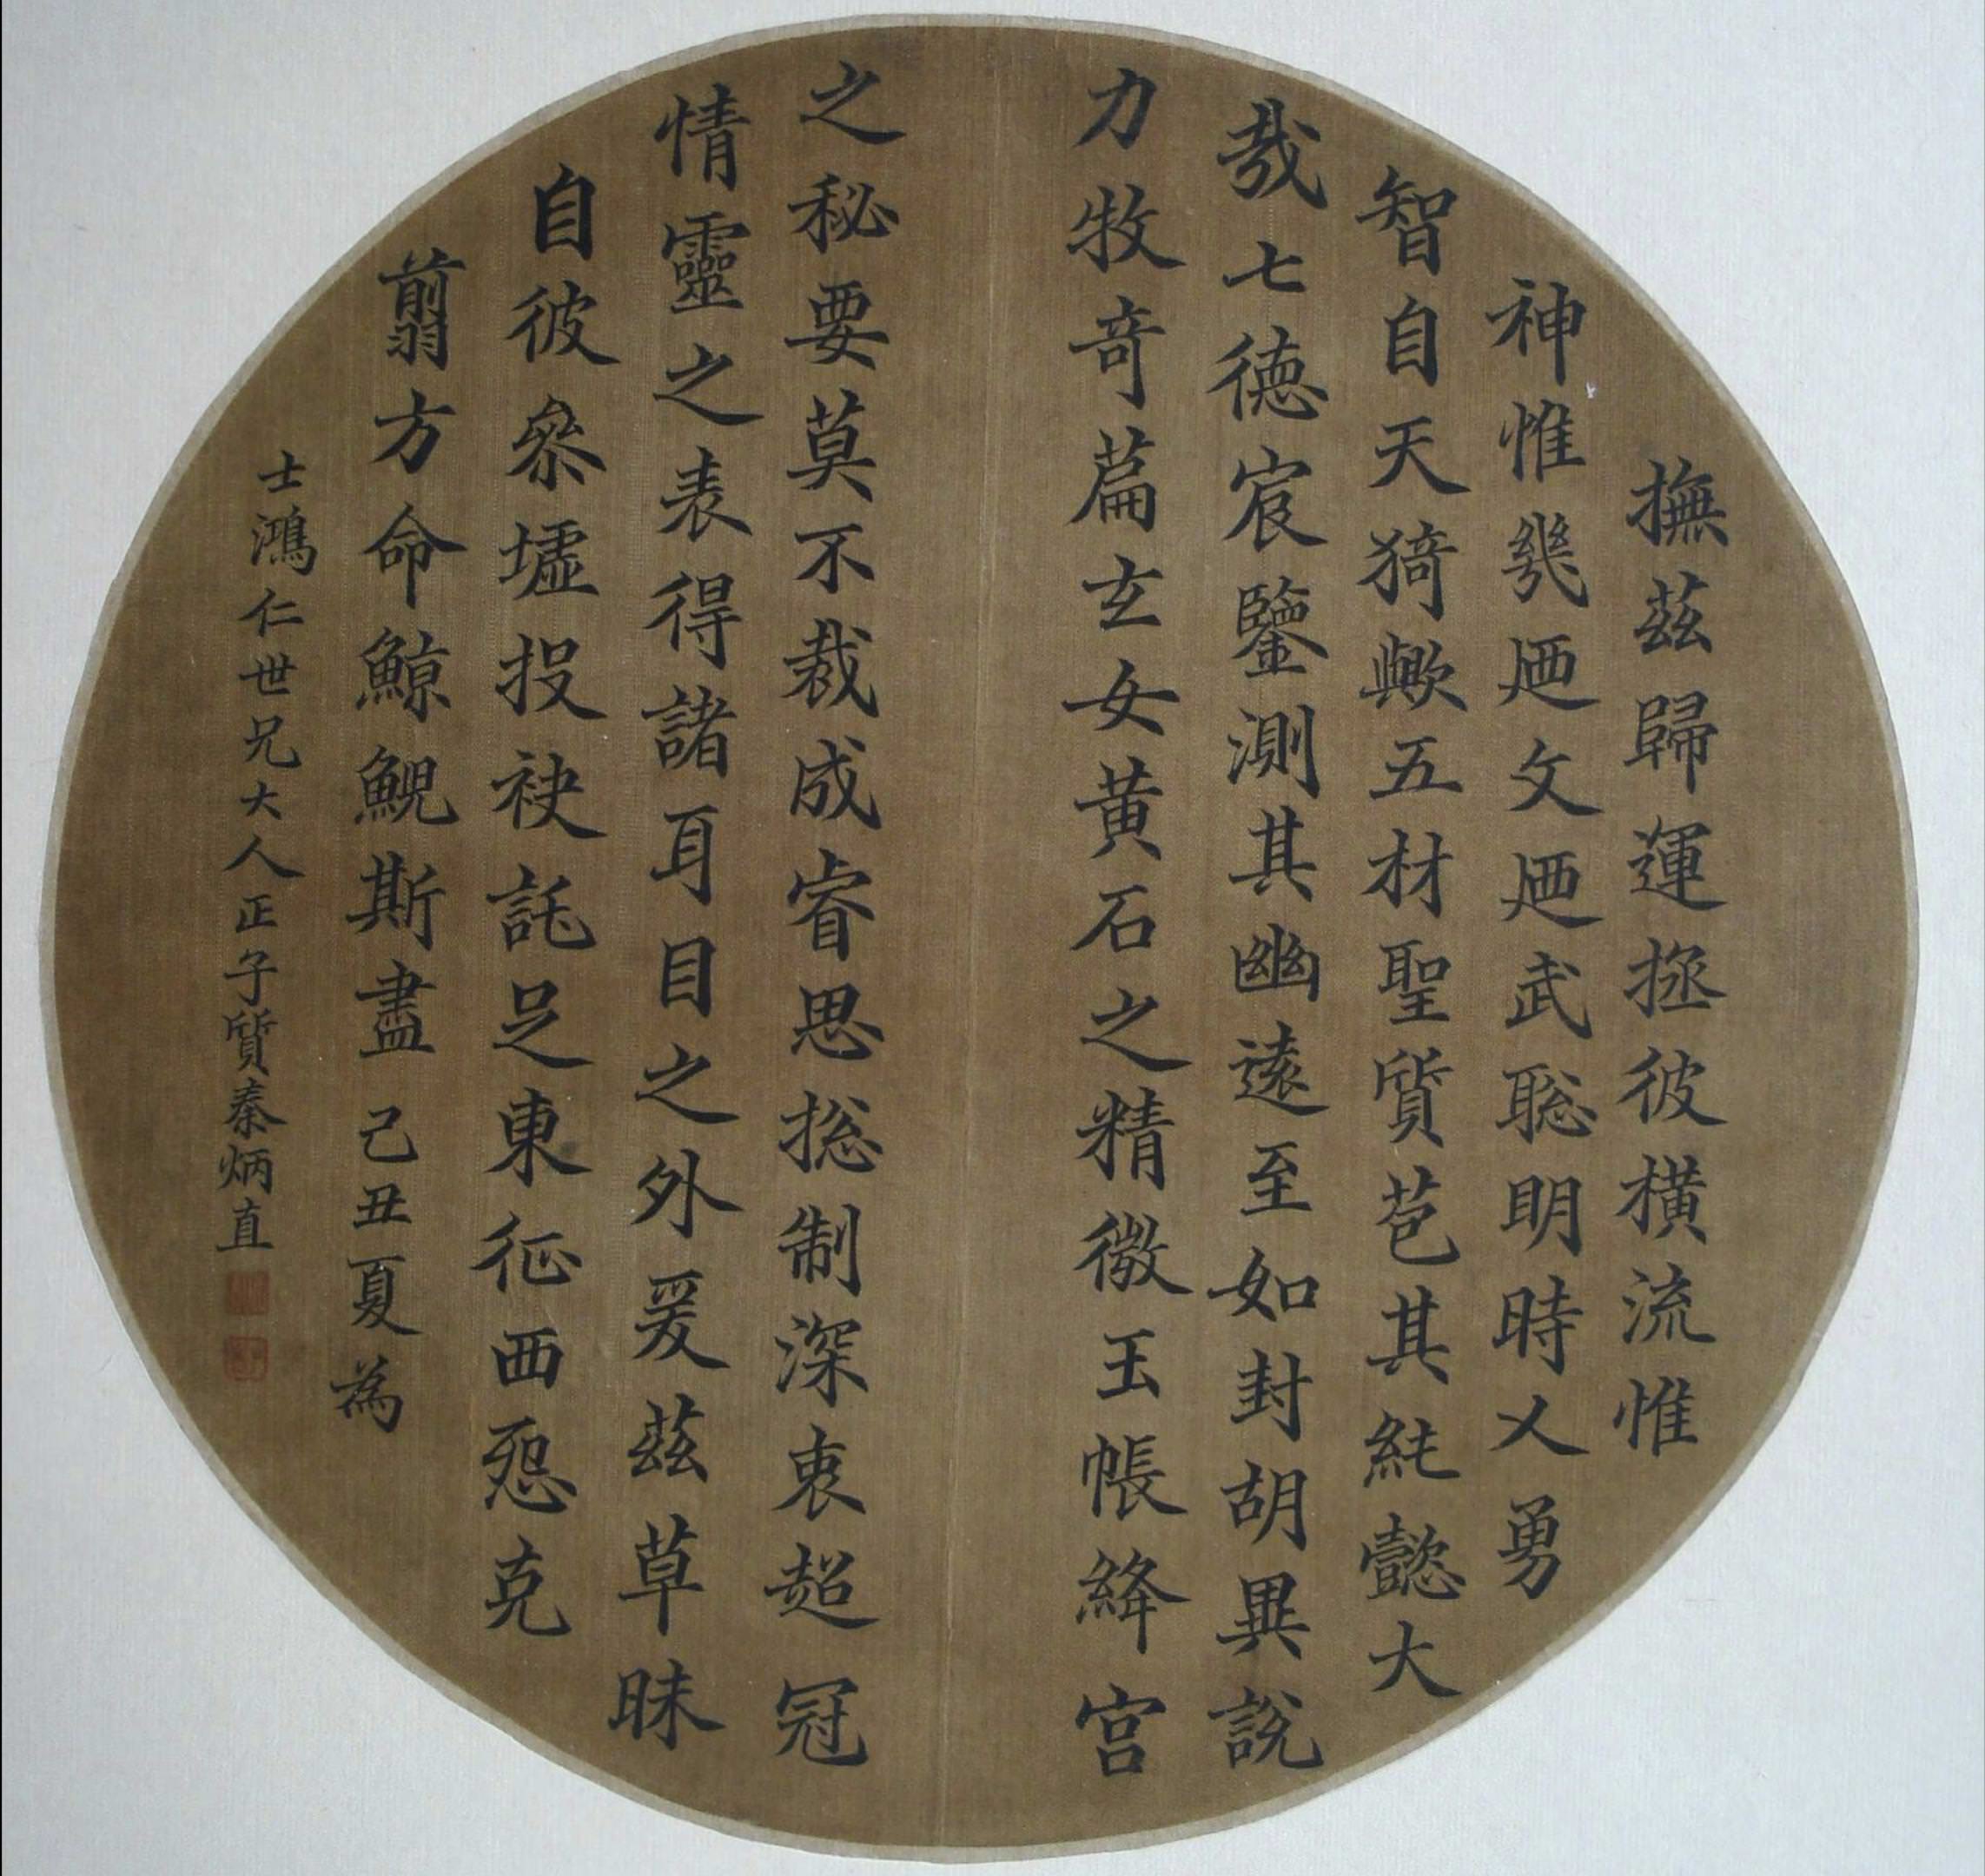 撫茲歸運拯彼橫流惟
神惟幾迺文迺武聡明時乂勇
智自天猗歟五材聖質苞其純懿大
哉七德宸鑒測其幽遠至如封胡異說
力牧奇篇玄女黃石之精微玉帳絳宮
之秘要莫不裁成睿思捴制深衷超冠
情靈之表得諸耳目之外爰茲草昧
自彼叅墟投袂託足東征西怨克
翦方命鯨鯢斯盡己丑夏為
士鴻仁世兄大人正子質秦炳直